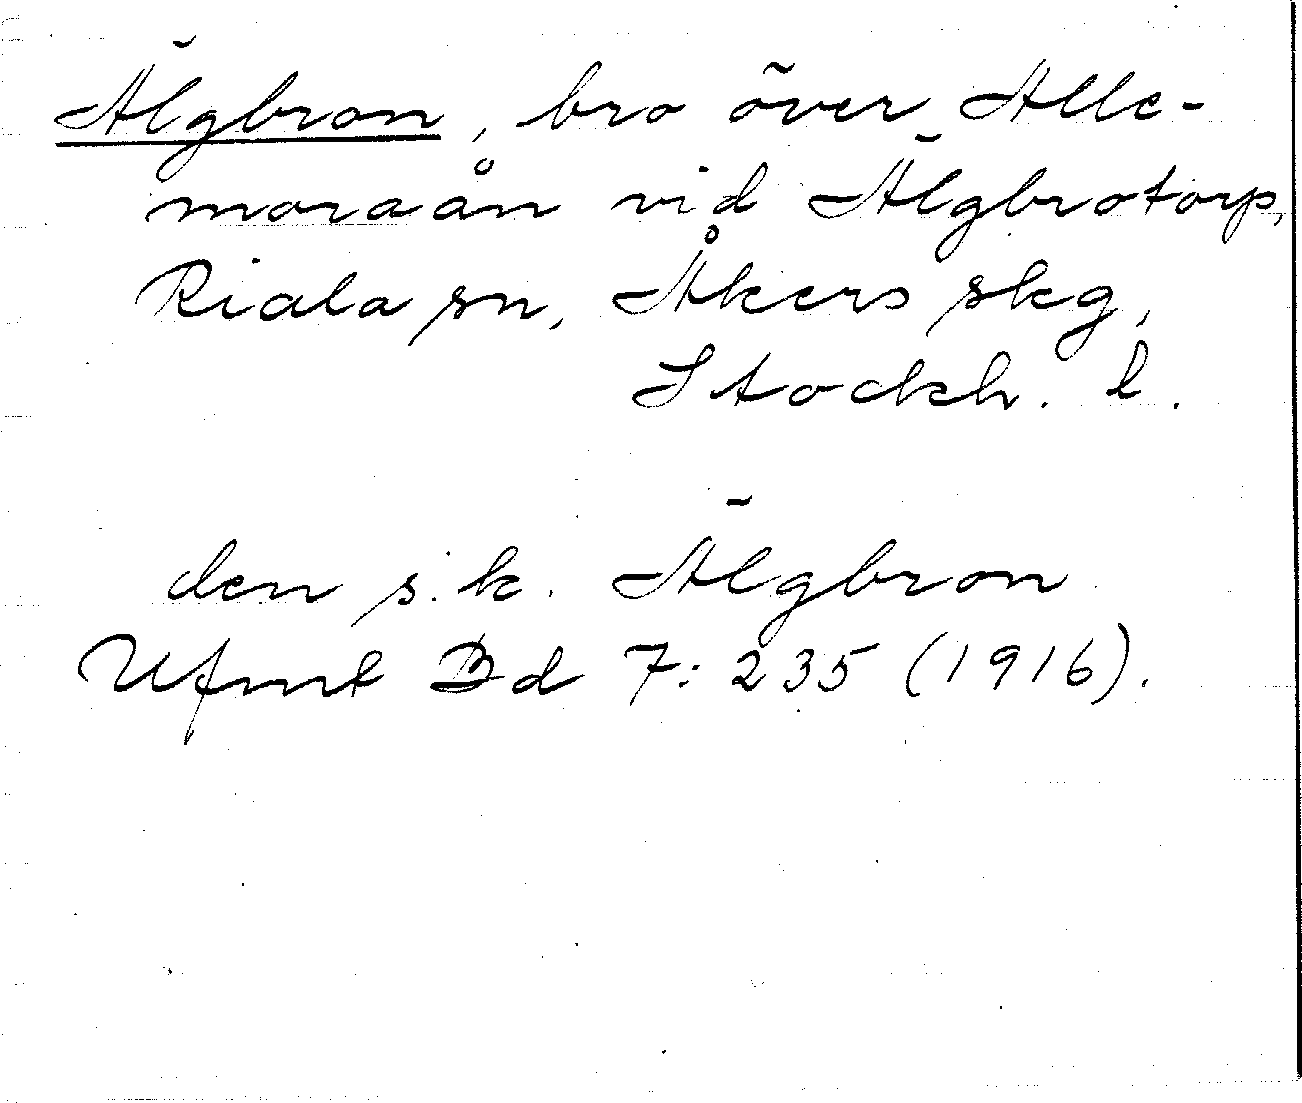 Älgbron, bro över Alle-
moraån vid Älgbrotorp,
Riala sn, Åkers skg,
Stockh. l.
den s.k. Älgbron
Ufmt Bd 7:235 (1916).